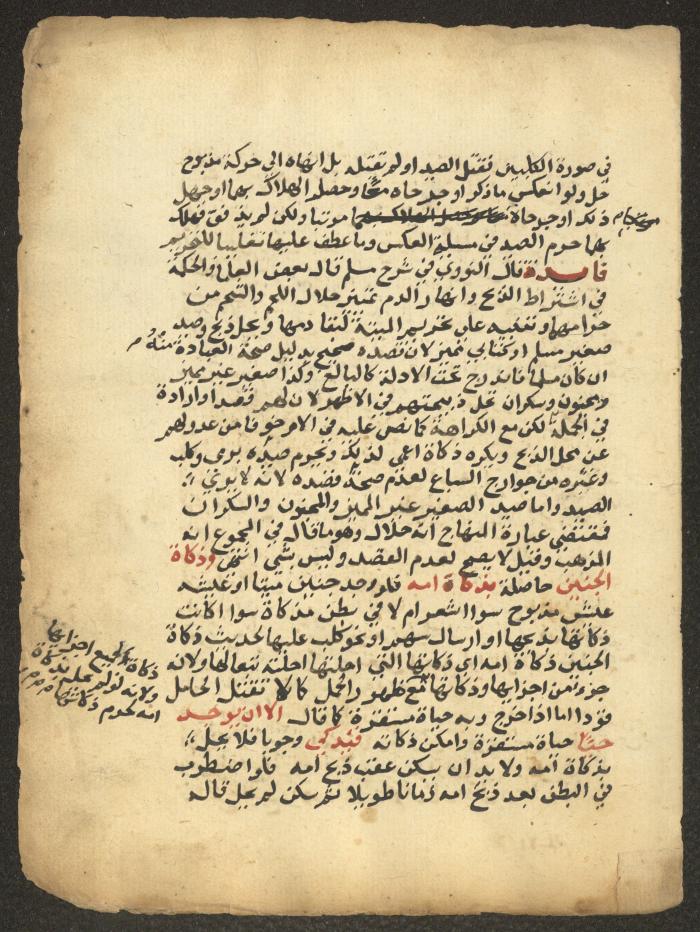 في صورة الكلبين فقتل الصيد او لم تقتله بل انهاه الى حركة مذبوح
حل ولو انعكس ما ذكر او جرحاه معا وحصل الهلاك بهما او جهل
ذلك او جرحاه مرتبا ولكن لم يذفف فهلك
بهما حرم الصيد في مسئلة العكس وما عطف عليها تغليبا للتحريم
فايدة قال النووي في شرح مسلم قال بعض العلما والحكمة
في اشتراط الذبح وانهار الدم تمييز حلال اللحم والشحم من
حرامهما وتنبيه على تحريم الميتة لبقا دمها ويحل ذبح وصيد
صغير مسلم او كتابي مميز لان قصده صحيح بدليل صحة العبادة منه
ان كان مسلما فاندرج تحت الادلة كالبالغ وكذا صغير غير مميز
ومجنون وسكران تحل ذبيحتهم في الاظهر لان لهم قصدا وارادة
في الجملة لكن مع الكراهة كما نص عليه في الام خوفا من عدولهم
عن محل الذبح ويكره ذكاة اعمى لذلك ويحرم صيده برمي وكلب
وغيره من جوارح السباع لعدم صحة قصده لانه لا يرى
الصيد واما صيد الصغير غير المميز والمجنون والسكران
فمقتضى عبارة المنهاج انه حلال وهو ما قاله في المجموع انه
المذهب وقيل لا يصح لعدم القصد وليس بشي انتهى وذكاة
الجنين حاصلة بذكاة امه فلو وجد جنين ميتا او عيشه
عيش مذبوح سوا اشعر ام لا في بطن مذكاة سوا اكانت
ذكاتها بذبحها او ارسال سهم او نحو كلب عليها لحديث ذكاة
الجنين ذكاة امه اي ذكاتها التي احلتها احلته تبعا لها ولانه
جزء من اجزايها وذكاتها مع ظهور الحمل كما لا تقتل الحامل
قودا اما اذا خرج وبه حياة مستقرة كما قال الا ان يوجد
حيا حياة مستقرة وامكن ذكاته فيذكى وجوبا فلا يحل
بذكاة امه ولا بد ان يسكن عقب ذبح امه فلو اضطرب
في البطن بعد ذبح امه زمانا طويلا ثم سكن لم يحل قاله
ذكاة لجميع اجزايها
ولانه لو لم يحل بذكاة
امه لحرم ذكاتها